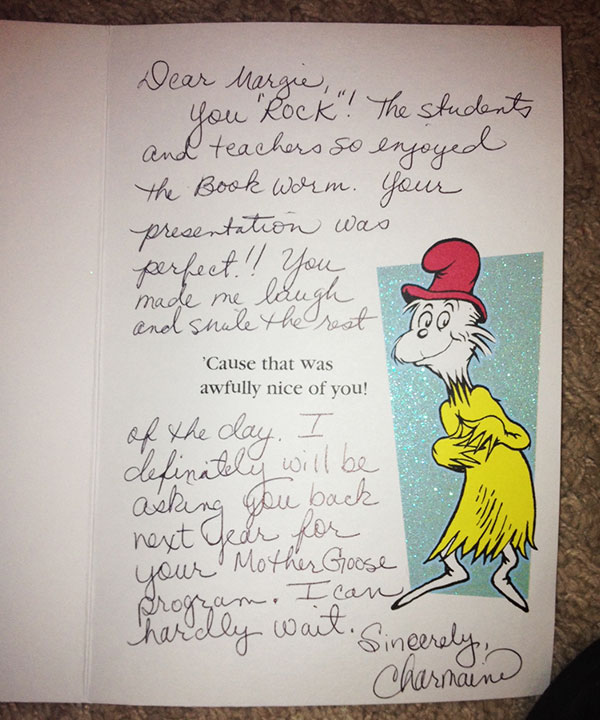 Dear Margie,
You "Rock"! The students
and teachers so enjoyed
the Book Worm. Your
presentation was
perfect!! You
made me laugh
and smile the rest
'Cause that was
awfully nice of you!
of the day. I
definately will be
asking you back
next year for
your Mother Goose
program. I can
hardly wait.
Sincerely,
Charmaine